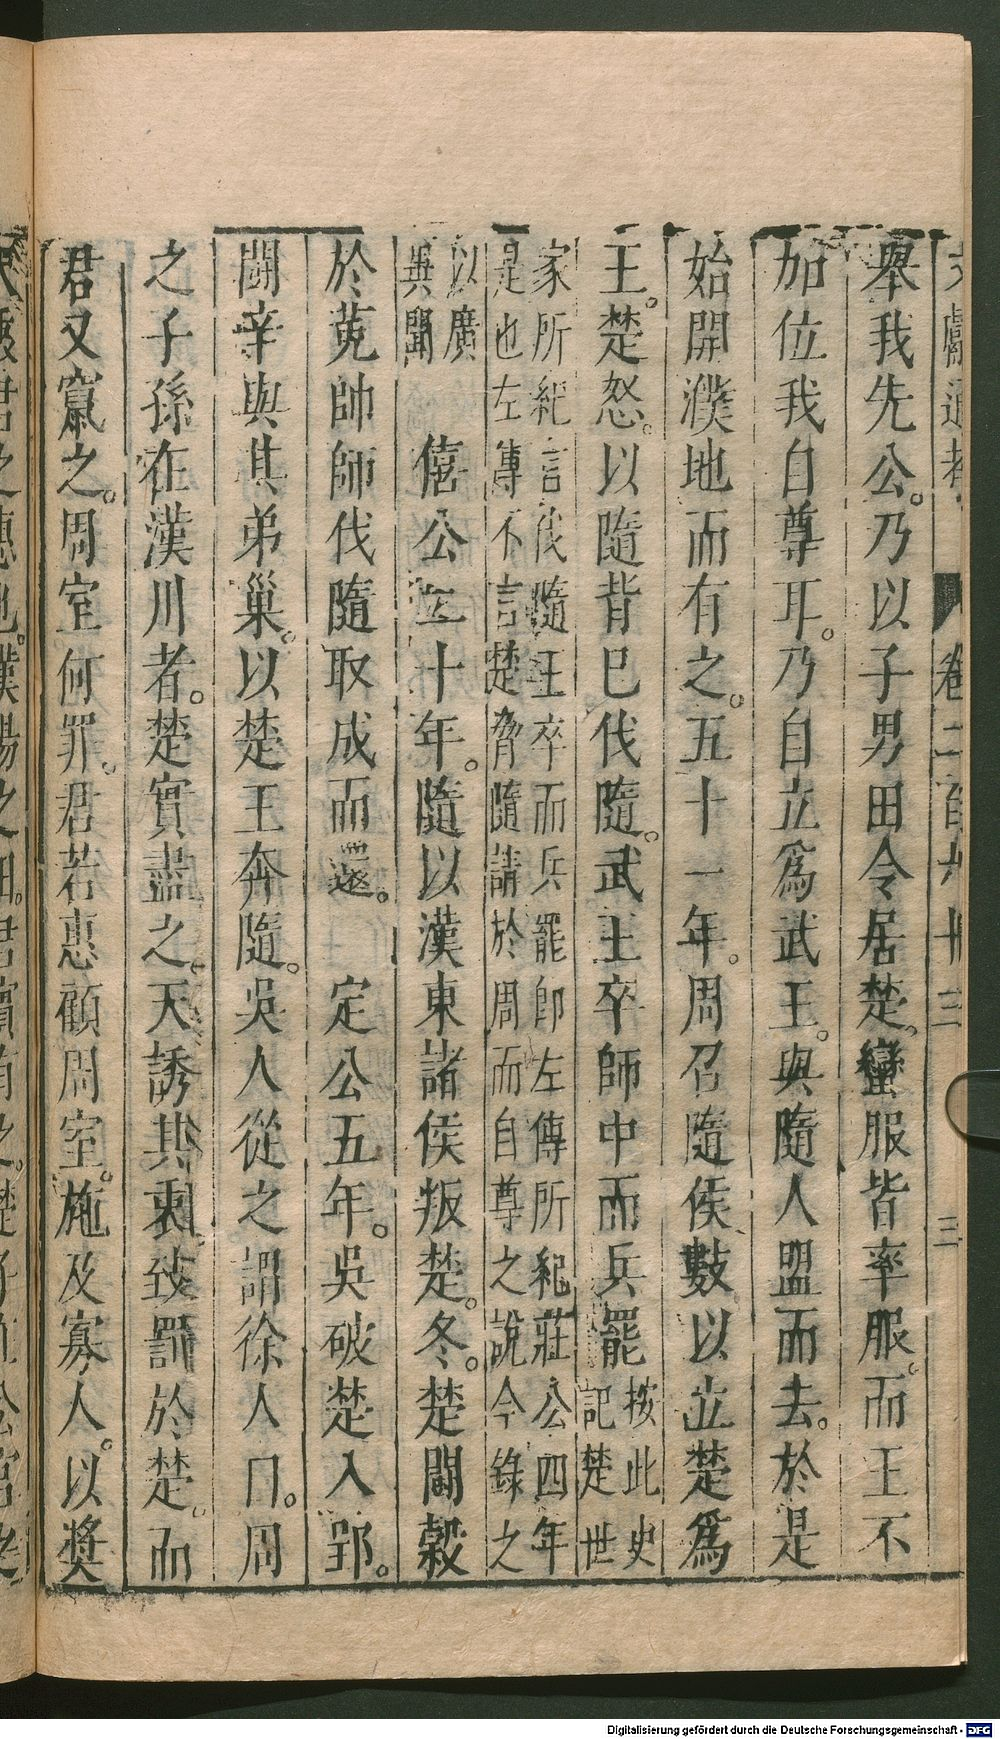 舉我先公。乃以子男田令居楚。蠻服皆率服。而王不
加位我自尊耳。乃自立爲武王。與隨人盟而去。於是
始開濮地而有之。五十一年。周召隨侯數以立楚爲
王。楚怒。以隨背已伐隨。武王卒師中而兵罷按此史
記楚世
家所紀言伐隨王卒而兵罷卽左傳所紀莊公四年
是也左傳不言楚脅隨請於周而自尊之說今錄之
以廣
異聞
僖公二十年。隨以漢東諸侯叛楚。冬。楚鬭穀
於菟帥師伐隨取成而還。定公五年。吳破楚入郢。
鬭辛與其弟巢。以楚王奔隨。吳人從之謂徐人曰。周
之子孫在漢川者。楚實盡之。天誘其衷致罰於楚。而
君又竄之。周室何罪。君若惠顧周室。施及寡人。以奬
卷二百六十三
三
Digitalisierung gefördert durch die Deutsche Forschungsgemeinschaft - DFG